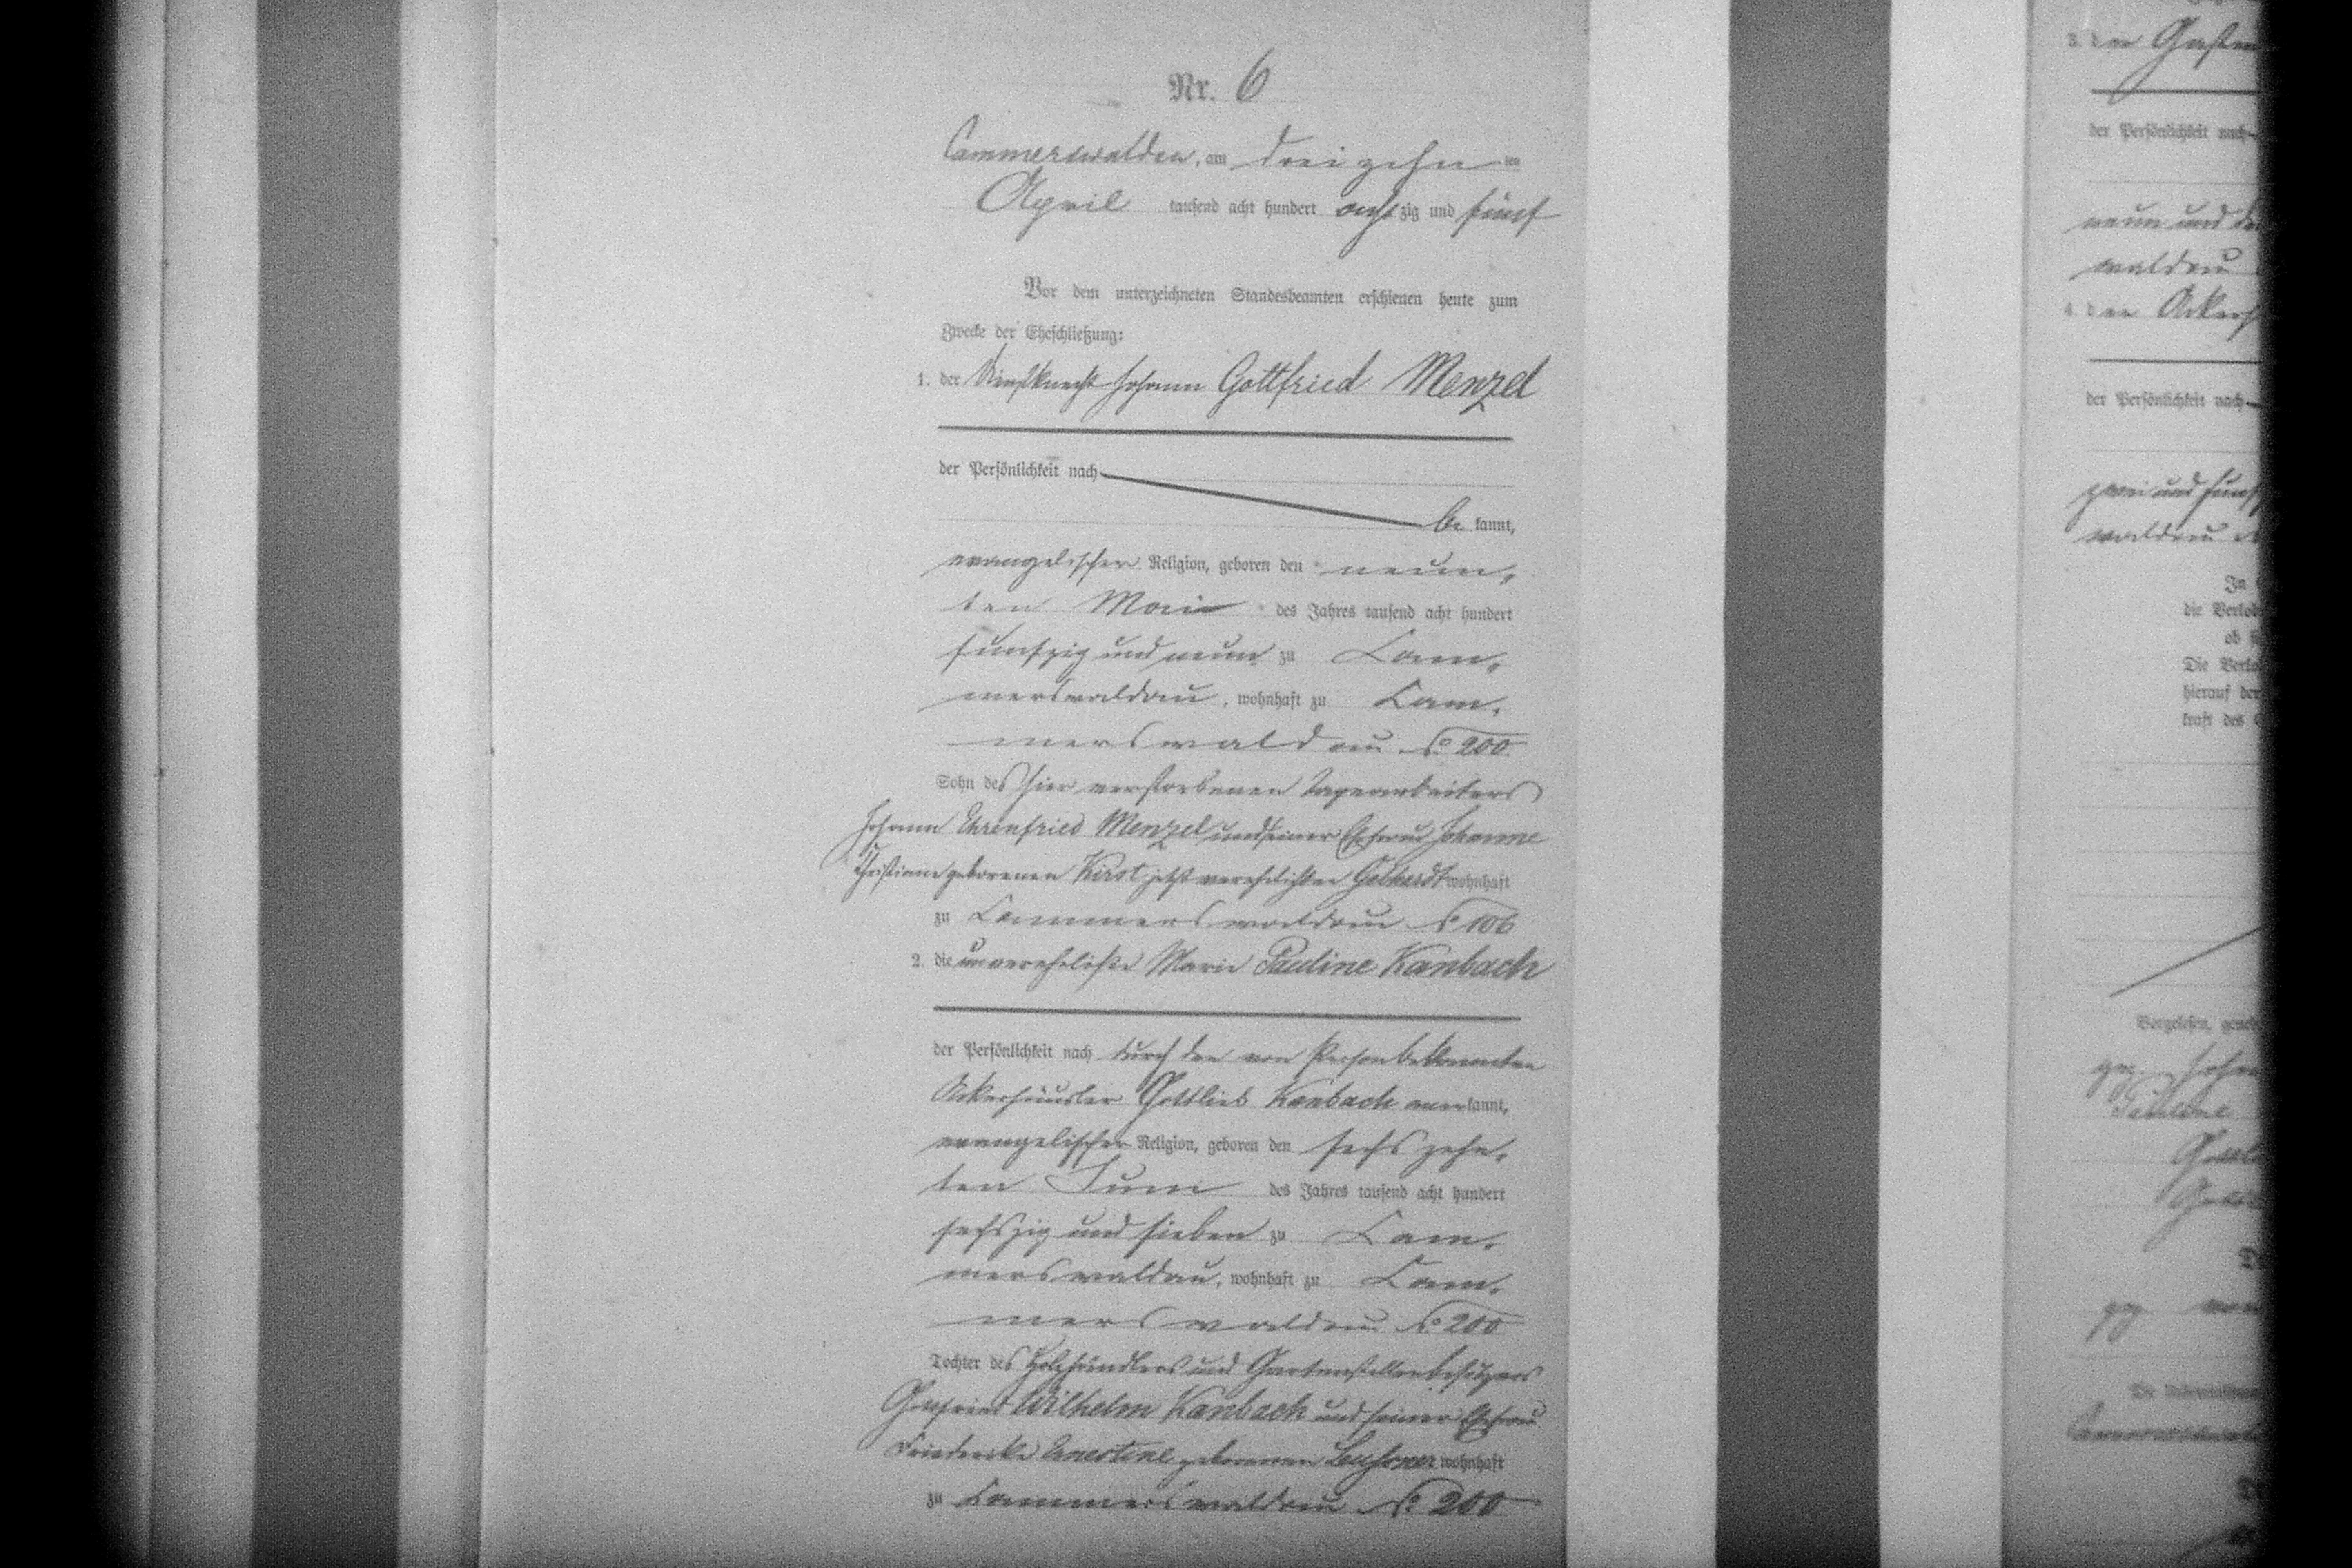 Nr. 6
Cammerswaldau, am dreizehn ten
April tausend acht hundert achtzig und fünf
Vor dem unterzeichneten Standesbeamten erschienen heute zum
Zwecke der Eheschließung:
1. der Dienstknecht Johann Gottfried Menzel
der Persönlichkeit nach
be kannt,
evangelischer Religion, geboren den neun-
ten Mai des Jahres tausend acht hundert
fünfzig und neun zu Cam-
merswaldau, wohnhaft zu Cam-
merswaldau No 200
Sohn des hier verstorbenen Tagearbeiters
Johann Ehrenfried Menzel und seiner Ehefrau Johanne
Christiane geborenen Kirst jetzt verehelichten Gebhardt wohnhaft
zu Cammerswaldau No 106
2. die unverehelichte Marie Pauline Kanbach
der Persönlichkeit nach durch den von Person bekannten
Ackerhäusler Gottlieb Kanbach anerkannt,
evangelischer Religion, geboren den sechszehn-
ten Juni des Jahres tausend acht hundert
sechszig und sieben zu Cam-
merswaldau, wohnhaft zu Cam-
merswaldau No 200
Tochter des Holzhändlers und Gartenstellenbesitzers
Wilhelm Kanbach und seiner Ehefrau
Friederike Ernestine geborenen wohnhaft
zu Cammerswaldau No 200
3. der
der Persönlichkeit nach
neun und
waldau
4. der
der Persönlichkeit nach
zwei und fünf
waldau
In
die Verlob
ob
Die Verlo
hierauf der
kraft des
Vorgelesen, geneh
gez. Joha
Pauline
Gottl
gez. von